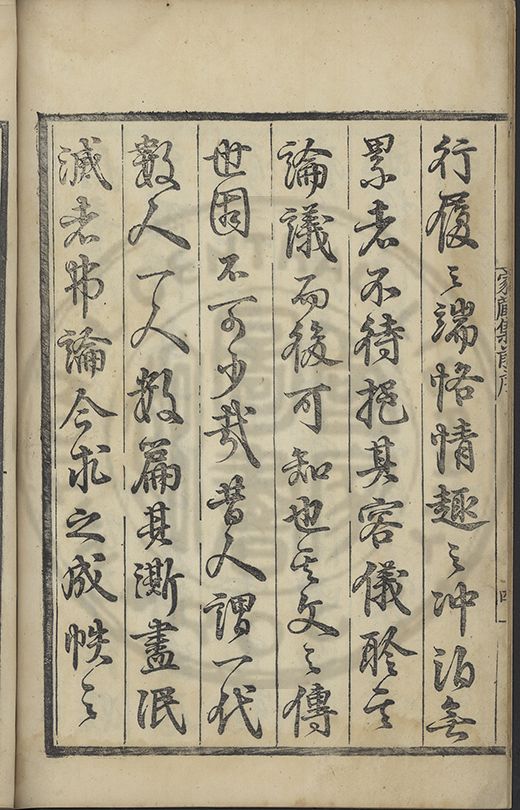 行履之端恪情趣之冲泊無
累者不待挹其容儀聆其
論議而後可知也其文之傳
世固不可少哉昔人謂一代
數人一人數篇其澌盡泯
滅者弗論今求之成帙之
家藏集後序
四